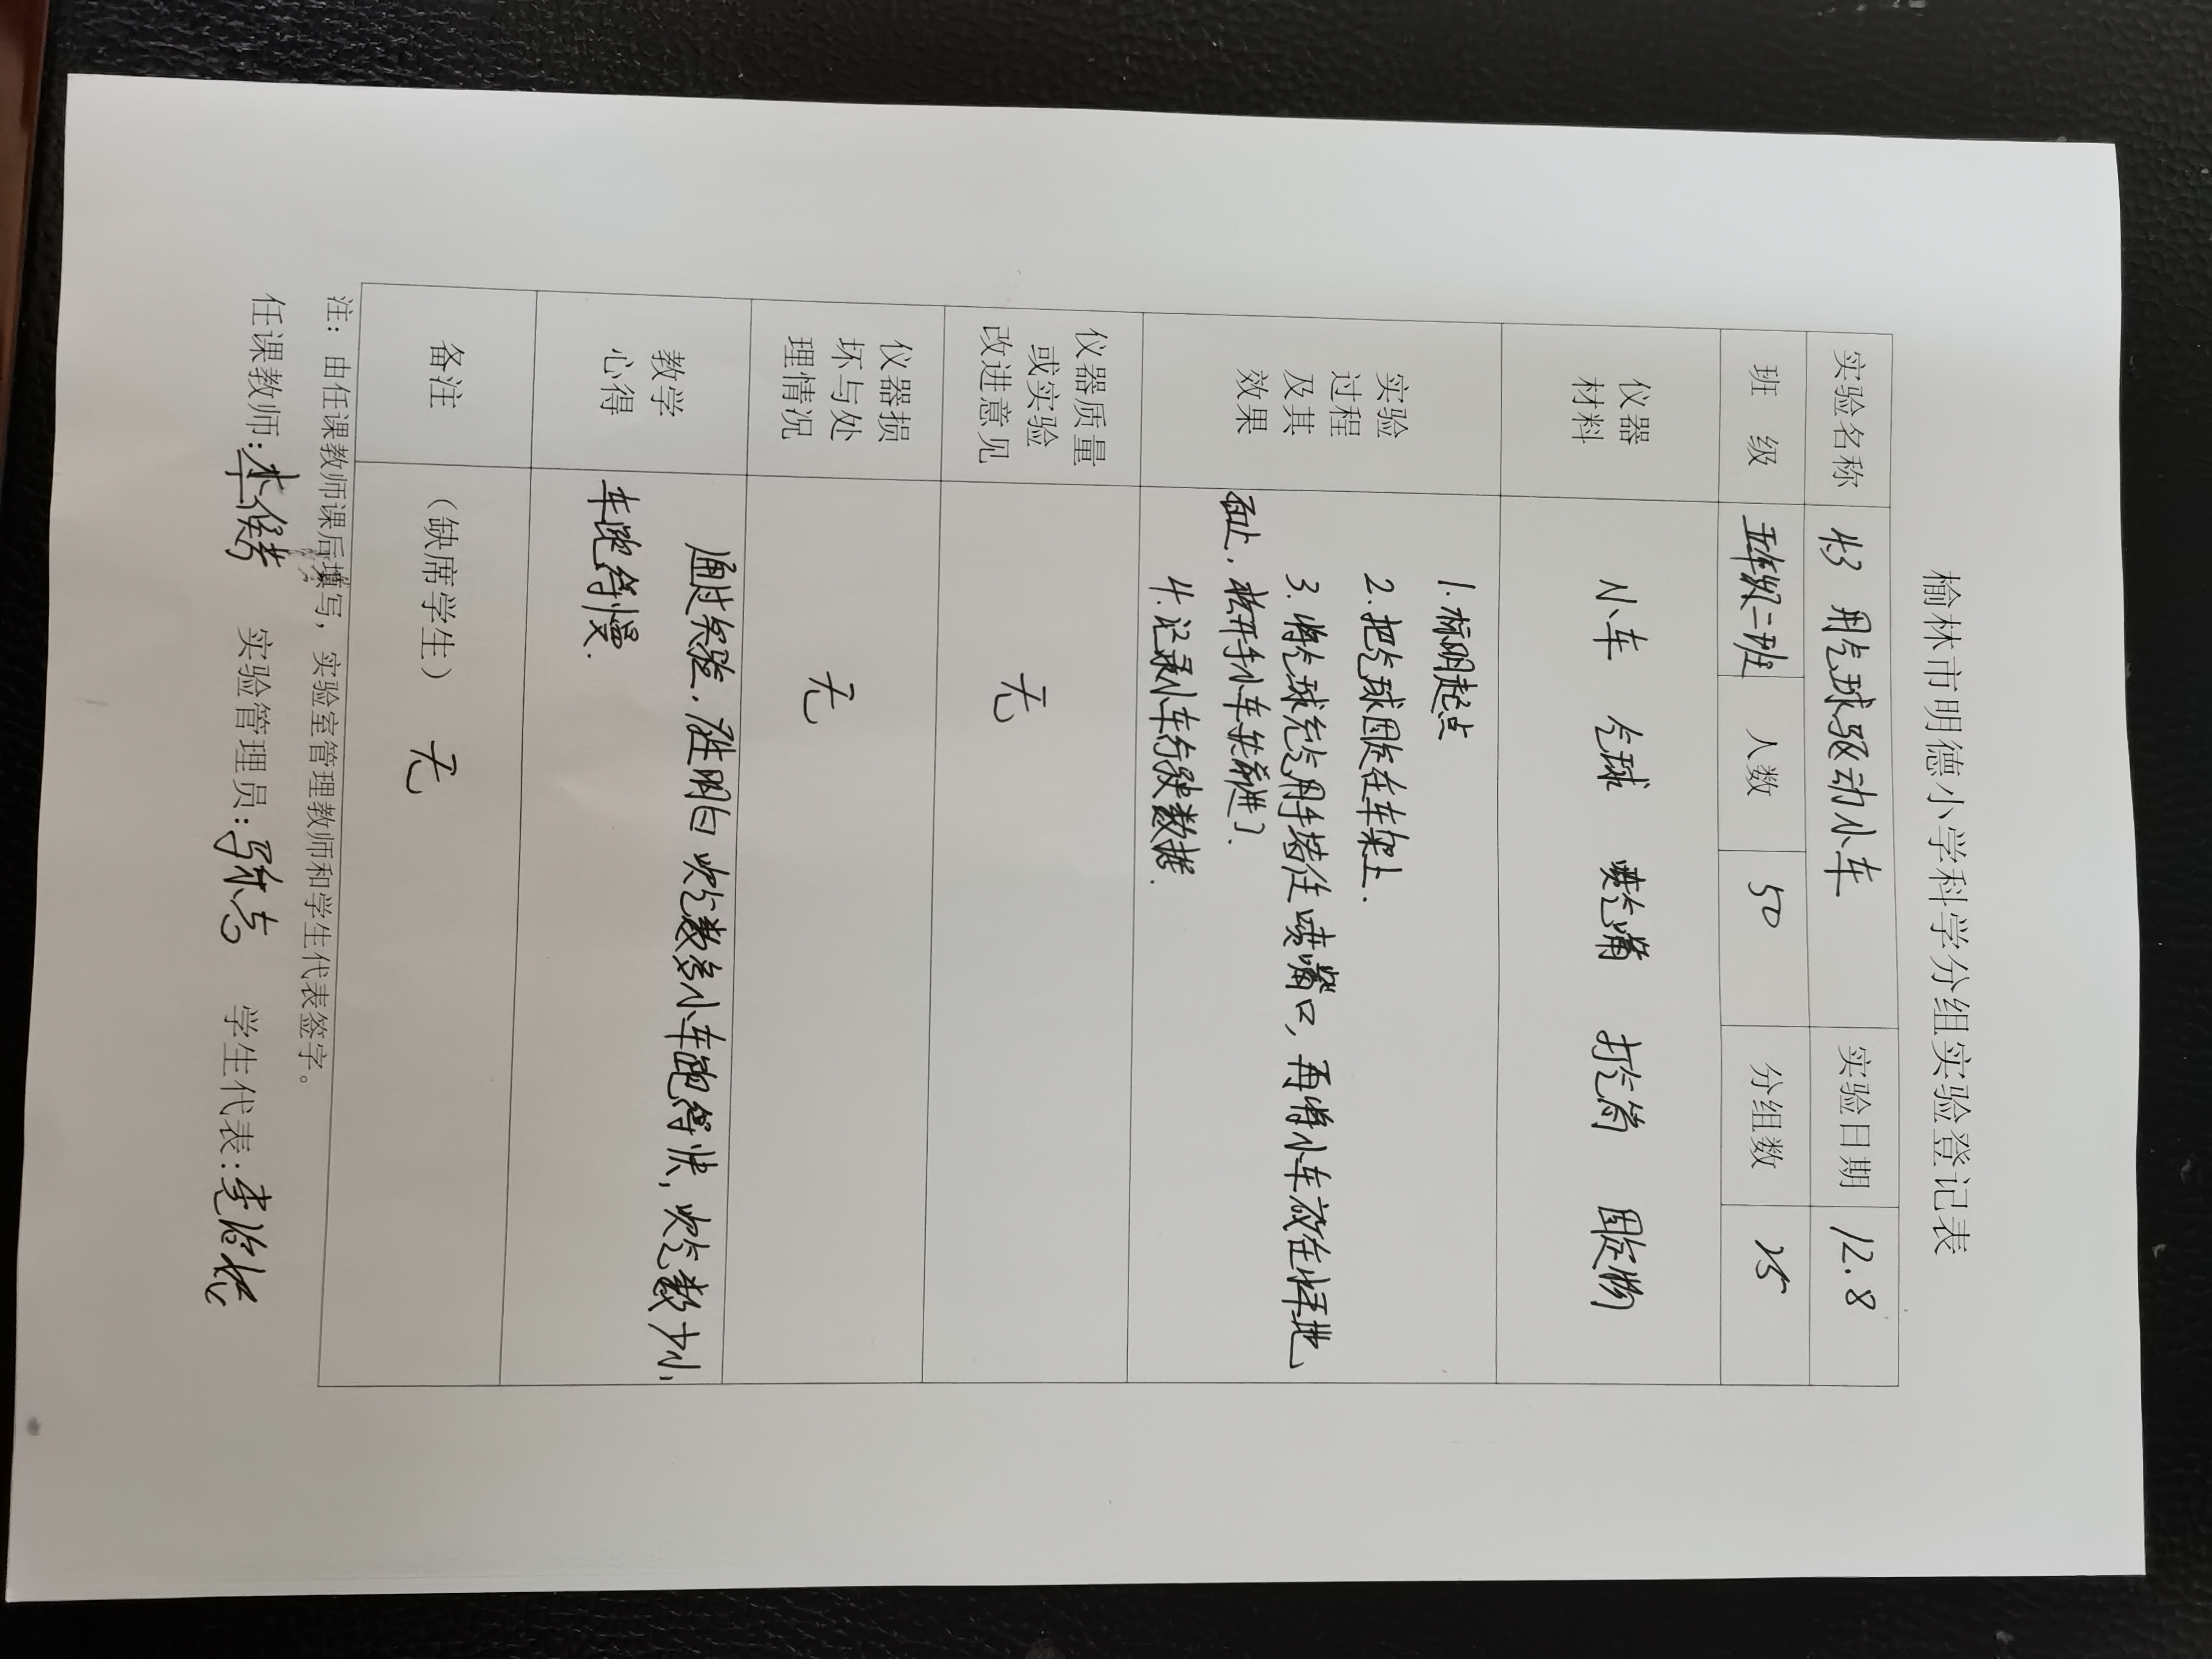 榆林市明德小学科学分组实验登记表
实验名称 4.3 用气球驱动小车 实验日期 12.8
班 级 五年级二班 人数 50 分组数 25
仪器
材料
小车 气球 喷气嘴 打气筒 固定物
实验
过程
及其
效果
1.标明起点
2.把气球固定在车架上.
3.将气球充气用手堵住喷嘴口,再将小车放在水平地
面上,松开手小车就前进了.
4.记录小车行驶数据.
仪器质量
或实验
改进意见
无
仪器损
坏与处
理情况
无
教学
心得
通过实验,学生明白吹气数多小车跑得快,吹气数少小
车跑得慢.
备注
(缺席学生) 无
注:由任课教师课后填写,实验室管理教师和学生代表签字。
任课教师: 实验管理员: 学生代表: